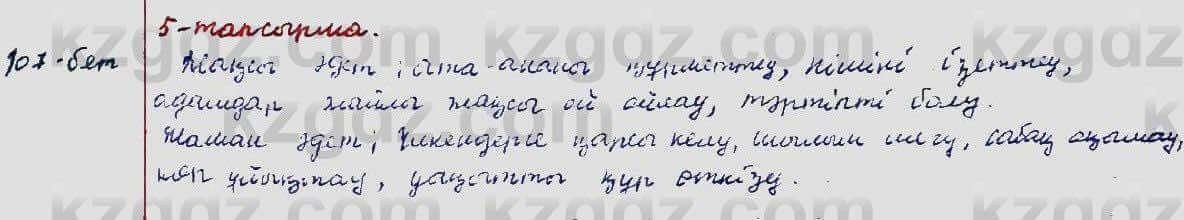 5-тапсырма.
107-бет
Жақсы әдет; ата-ананы құрметтеу, кішіні ізеттеу,
адамдар жайлы жақсы ой ойлау, тәртіпті болу.
Жаман әдет; Үлкендерге қарсы келу, шылым шегу, сабақ оқымау,
көп ұйықтау, уақытты құр өткізу.